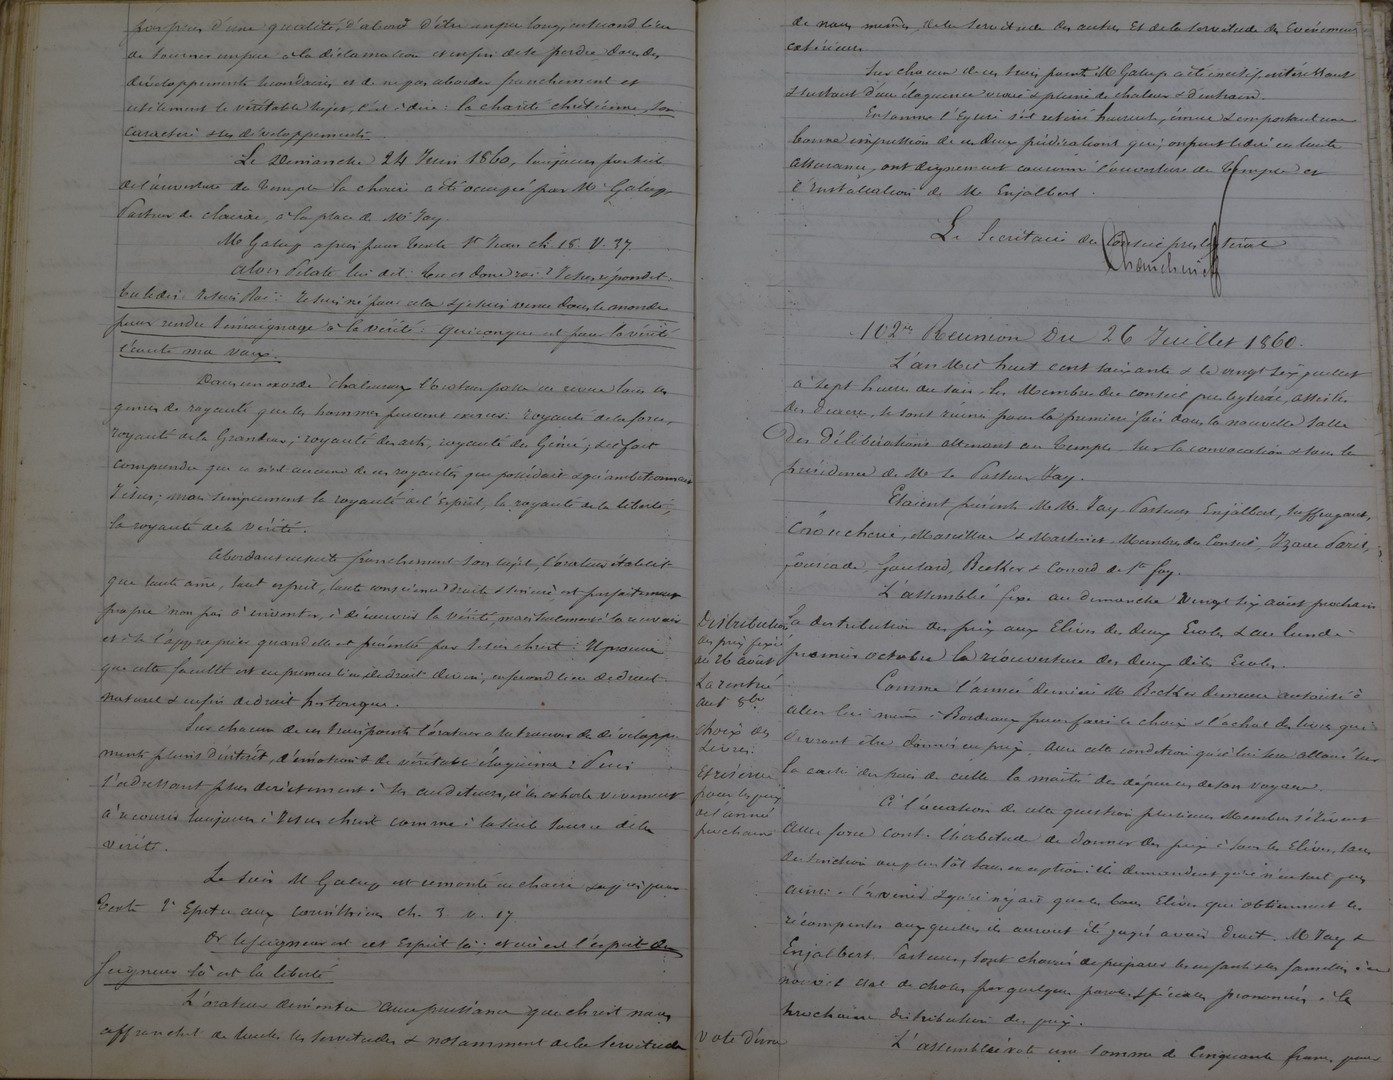 d'une qualité, d'abord d'être un peu long, en second lieu
de tourner un peu à la déclamation et enfin de se perdre dans des
développements secondaires et de ne pas aborder franchement et
utilement le véritable sujet, c'est à dire: la charité chrétienne, son
caractère & ses développements.
Le Dimanche 24 Juin 1860, toujours par suite
de l'ouverture du Temple la chaire a été occupée par Mr Galup,
Pasteur de clairac, à la place de Mr Fay.
Mr Galup a pris pour texte St Jean ch. 18 V. 37
alors Pilate lui dit: tu es donc roi? Jésus répondit:
tu le dis: Je suis Roi: Je suis né pour cela & je suis venu dans le monde
pour rendre témoignage à la vérité: quiconque est pour la vérité
écoute ma voix.
Dans un exorde chaleureux l'orateur passe en revue tous les
genres de royauté que les hommes peuvent exercer: royauté de la force,
royauté de la Grandeur; royauté des arts, royauté du Génie; et il fait
comprendre que ce n'est aucune de ces royautés que possédait & qu'ambitionnait
Jésus; mais simplement la royauté de l'Esprit, la royauté de la liberté,
la royauté de la vérité.
Abordant ensuite franchement son sujet, l'orateur établit
que toute âme, tout esprit, toute conscience droite & sincère, est parfaitement
propre non pas à inventer, à découvrir la vérité, mais seulement à la recevoir
et à l'apprécier quand elle est présentée par Jésus christ: Il prouve
que cette faculté est en premier lieu de droit divin, en second lieu de droit
naturel & enfin de droit historique.
Sur chacun de ces trois points l'orateur a su trouver des développe-
ments pleins d'intérêt, d'émotion & de véritable éloquence: Puis
s'adressant plus directement à ses auditeurs, il les exhorte vivement
à recourir toujours à Jésus christ comme à la seule source de la
vérité.
Le soir M Galup est remonté en chaire & a pris pour
texte 2e Epitre aux corinthiens ch. 3 v. 17
Or le seigneur est cet Esprit là; et où est l'esprit du
Seigneur là est la liberté
L'orateur démontre avec puissance que christ nous
affranchit de toutes les servitudes & notamment de la servitude
de nous même, de la servitude des autres et de la servitude des Evénements
extérieurs.
Sur chacun de ces trois points M Galup a été incisif, intéressant
& surtout d'une éloquence vraie & pleine de chaleur & d'entrain.
En somme l'Eglise s'est retirée heureuse, émue & emportant une
bonne impression de ces deux prédications qui, on peut le dire en toute
assurance, ont dignement couronné l'ouverture du Temple et
l'Installation de M Enjalbert.
Le Secrétaire du Conseil presbytéral
102me Réunion Du 26 Juillet 1860.
L'an Mil huit cent soixante & le vingt six juillet
à sept heures du soir, les Membres du conseil presbytéral, assistés
des diacres, se sont réunis pour la première fois dans la nouvelle Salle
Des Délibérations attenant au Temple, sur la convocation & sous la
présidence de Mr le Pasteur Fay.
Etaient présents MM. Fay Pasteur, Enjalbert, suffragant,
& Martinet Membres du Conseil,
Fourcade, Goulard, Becker & Conord de Ste foy.
L'assemblée fixe au dimanche vingt six août prochain
la distribution des prix aux Elèves des deux Ecoles & au lundi
premier octobre la réouverture des deux dites Ecoles.
Distribution
des prix fixée
au 26 août
La rentrée
au 1er 8bre
Comme l'année dernière M Becker demeure autorisé à
aller lui même à Bordeaux pour faire le choix & l'achat des livres qui
devront être donnés en prix, avec cette condition qu'il lui sera alloué sur
la caisse des frais de culte la moitié des dépenses de son voyage.
choix des
Livres.
A l'occasion de cette question plusieurs Membres s'élèvent
avec force contre l'habitude de donner des prix à tous les Elèves, sans
distinction ou plutôt sans exception: ils demandent qu'il n'en soit plus
ainsi à l'avenir & qu'il n'y ait que les bons Elèves qui obtiennent les
récompenses auxquelles ils auront été jugés avoir droit. M Fay &
Enjalbert Pasteurs, sont chargés de préparer les enfants & les familles à ce
nouvel état de choses par quelques paroles spéciales prononcées à la
prochaine distribution des prix.
Et réserve
pour les prix
de l'année
prochaine
L'assemblée vote une somme de Cinquante francs pour
Vote d'une